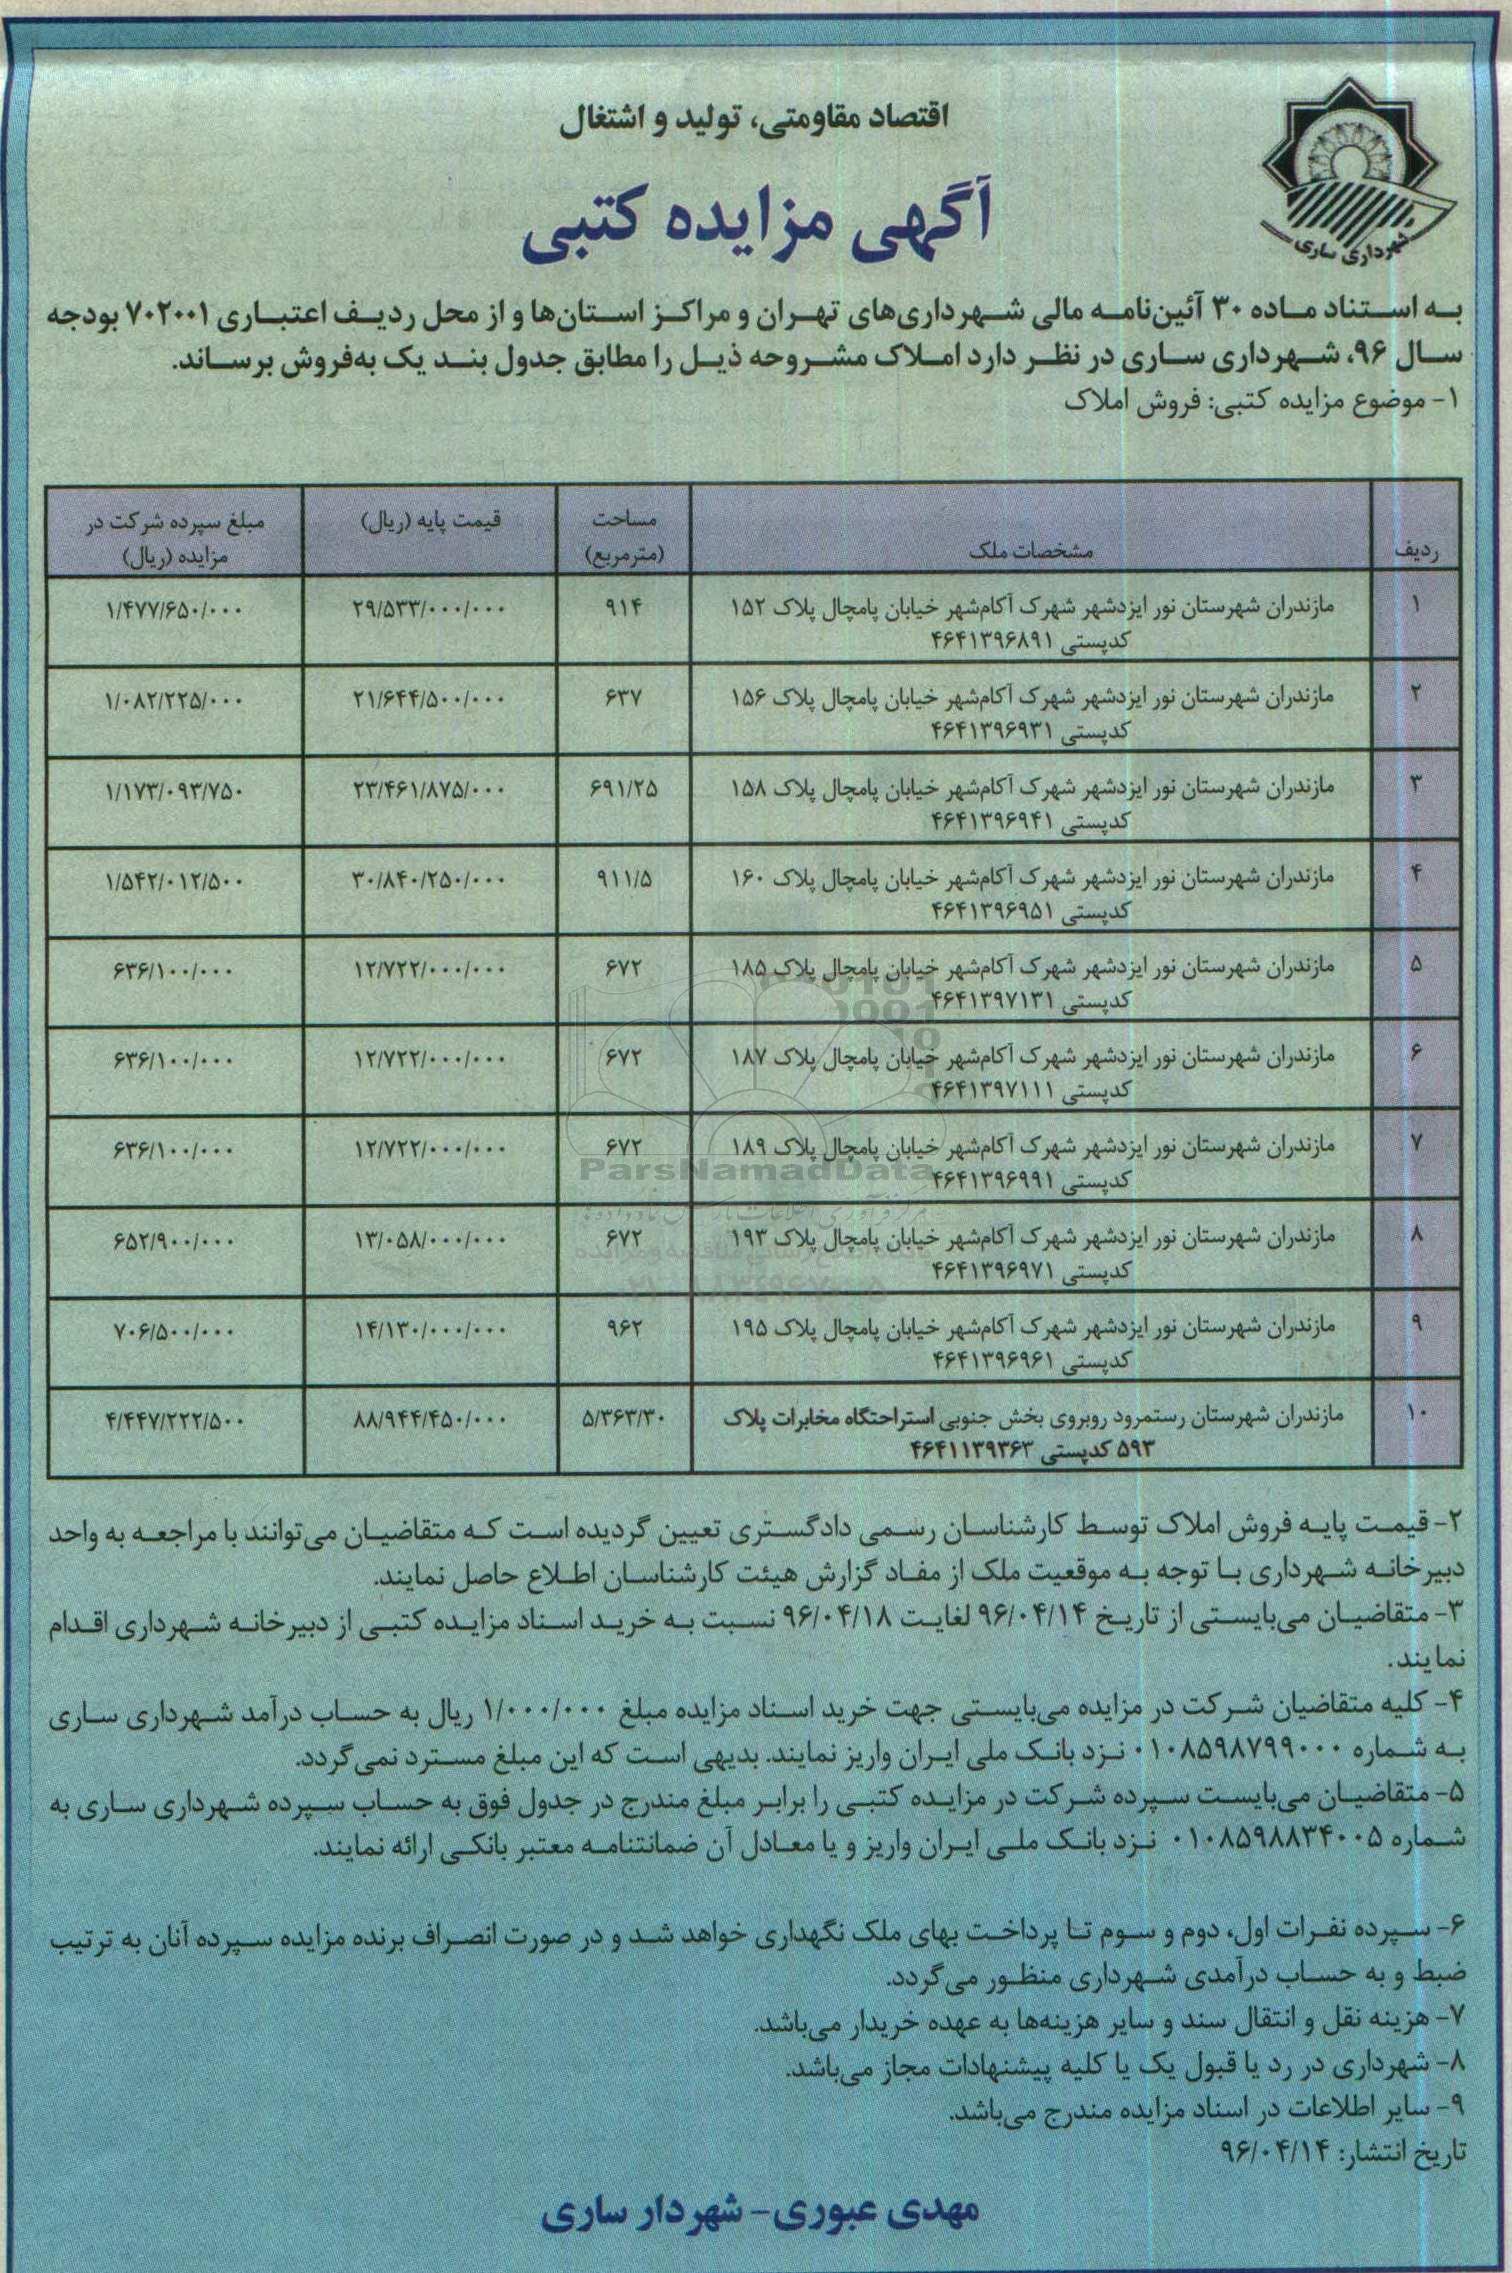 اقتصاد مقاومتی، تولید و اشتغال
آگهی مزایده کتبی
شهرداری ساری
به استناد ماده ۳۰ آئین‌نامه مالی شهرداری‌های تهران و مراکز استان‌ها و از محل ردیف اعتباری ۷۰۲۰۰۱ بودجه
سال ۹۶، شهرداری ساری در نظر دارد املاک مشروحه ذیل را مطابق جدول بند یک به‌فروش برساند.
۱- موضوع مزایده کتبی: فروش املاک
ردیف مشخصات ملک مساحت (مترمربع) قیمت پایه (ریال) مبلغ سپرده شرکت در مزایده (ریال)
۱ مازندران شهرستان نور ایزدشهر شهرک آکام‌شهر خیابان پامچال پلاک ۱۵۲ ۹۱۴ ۲۹/۵۳۳/۰۰۰/۰۰۰ ۱/۴۷۷/۶۵۰/۰۰۰
کدپستی ۴۶۴۱۳۹۶۸۹۱
۲ مازندران شهرستان نور ایزدشهر شهرک آکام‌شهر خیابان پامچال پلاک ۱۵۶ ۶۳۷ ۲۱/۶۴۴/۵۰۰/۰۰۰ ۱/۰۸۲/۲۲۵/۰۰۰
کدپستی ۴۶۴۱۳۹۶۹۳۱
۳ مازندران شهرستان نور ایزدشهر شهرک آکام‌شهر خیابان پامچال پلاک ۱۵۸ ۶۹۱/۲۵ ۲۳/۴۶۱/۸۷۵/۰۰۰ ۱/۱۷۳/۰۹۳/۷۵۰
کدپستی ۴۶۴۱۳۹۶۹۴۱
۴ مازندران شهرستان نور ایزدشهر شهرک آکام‌شهر خیابان پامچال پلاک ۱۶۰ ۹۱۱/۵ ۳۰/۸۴۰/۲۵۰/۰۰۰ ۱/۵۴۲/۰۱۲/۵۰۰
کدپستی ۴۶۴۱۳۹۶۹۵۱
۵ مازندران شهرستان نور ایزدشهر شهرک آکام‌شهر خیابان پامچال پلاک ۱۸۵ ۶۷۲ ۱۲/۷۲۲/۰۰۰/۰۰۰ ۶۳۶/۱۰۰/۰۰۰
کدپستی ۴۶۴۱۳۹۷۱۳۱
۶ مازندران شهرستان نور ایزدشهر شهرک آکام‌شهر خیابان پامچال پلاک ۱۸۷ ۶۷۲ ۱۲/۷۲۲/۰۰۰/۰۰۰ ۶۳۶/۱۰۰/۰۰۰
کدپستی ۴۶۴۱۳۹۷۱۱۱
۷ مازندران شهرستان نور ایزدشهر شهرک آکام‌شهر خیابان پامچال پلاک ۱۸۹ ۶۷۲ ۱۲/۷۲۲/۰۰۰/۰۰۰ ۶۳۶/۱۰۰/۰۰۰
کدپستی ۴۶۴۱۳۹۶۹۹۱
ParsNamadData
۸ مازندران شهرستان نور ایزدشهر شهرک آکام‌شهر خیابان پامچال پلاک ۱۹۳ ۶۷۲ ۱۳/۰۵۸/۰۰۰/۰۰۰ ۶۵۲/۹۰۰/۰۰۰
کدپستی ۴۶۴۱۳۹۶۹۷۱
۹ مازندران شهرستان نور ایزدشهر شهرک آکام‌شهر خیابان پامچال پلاک ۱۹۵ ۹۶۲ ۱۴/۱۳۰/۰۰۰/۰۰۰ ۷۰۶/۵۰۰/۰۰۰
کدپستی ۴۶۴۱۳۹۶۹۶۱
۱۰ مازندران شهرستان رستمرود روبروی بخش جنوبی استراحتگاه مخابرات پلاک ۵/۳۶۳/۳۰ ۸۸/۹۴۴/۴۵۰/۰۰۰ ۴/۴۴۷/۲۲۲/۵۰۰
۵۹۳ کدپستی ۴۶۴۱۱۳۹۳۶۳
۲- قیمت پایه فروش املاک توسط کارشناسان رسمی دادگستری تعیین گردیده است که متقاضیان می‌توانند با مراجعه به واحد
دبیرخانه شهرداری با توجه به موقعیت ملک از مفاد گزارش هیئت کارشناسان اطلاع حاصل نمایند.
۳- متقاضیان می‌بایستی از تاریخ ۹۶/۰۴/۱۴ لغایت ۹۶/۰۴/۱۸ نسبت به خرید اسناد مزایده کتبی از دبیرخانه شهرداری اقدام
نمایند.
۴- کلیه متقاضیان شرکت در مزایده می‌بایستی جهت خرید اسناد مزایده مبلغ ۱/۰۰۰/۰۰۰ ریال به حساب درآمد شهرداری ساری
به شماره ۰۱۰۸۵۹۸۷۹۹۰۰۰ نزد بانک ملی ایران واریز نمایند. بدیهی است که این مبلغ مسترد نمی‌گردد.
۵- متقاضیان می‌بایست سپرده شرکت در مزایده کتبی را برابر مبلغ مندرج در جدول فوق به حساب سپرده شهرداری ساری به
شماره ۰۱۰۸۵۹۸۸۳۴۰۰۵ نزد بانک ملی ایران واریز و یا معادل آن ضمانتنامه معتبر بانکی ارائه نمایند.
۶- سپرده نفرات اول، دوم و سوم تا پرداخت بهای ملک نگهداری خواهد شد و در صورت انصراف برنده مزایده سپرده آنان به ترتیب
ضبط و به حساب درآمدی شهرداری منظور می‌گردد.
۷- هزینه نقل و انتقال سند و سایر هزینه‌ها به عهده خریدار می‌باشد.
۸- شهرداری در رد یا قبول یک یا کلیه پیشنهادات مجاز می‌باشد.
۹- سایر اطلاعات در اسناد مزایده مندرج می‌باشد.
تاریخ انتشار: ۹۶/۰۴/۱۴
مهدی عبوری- شهردار ساری